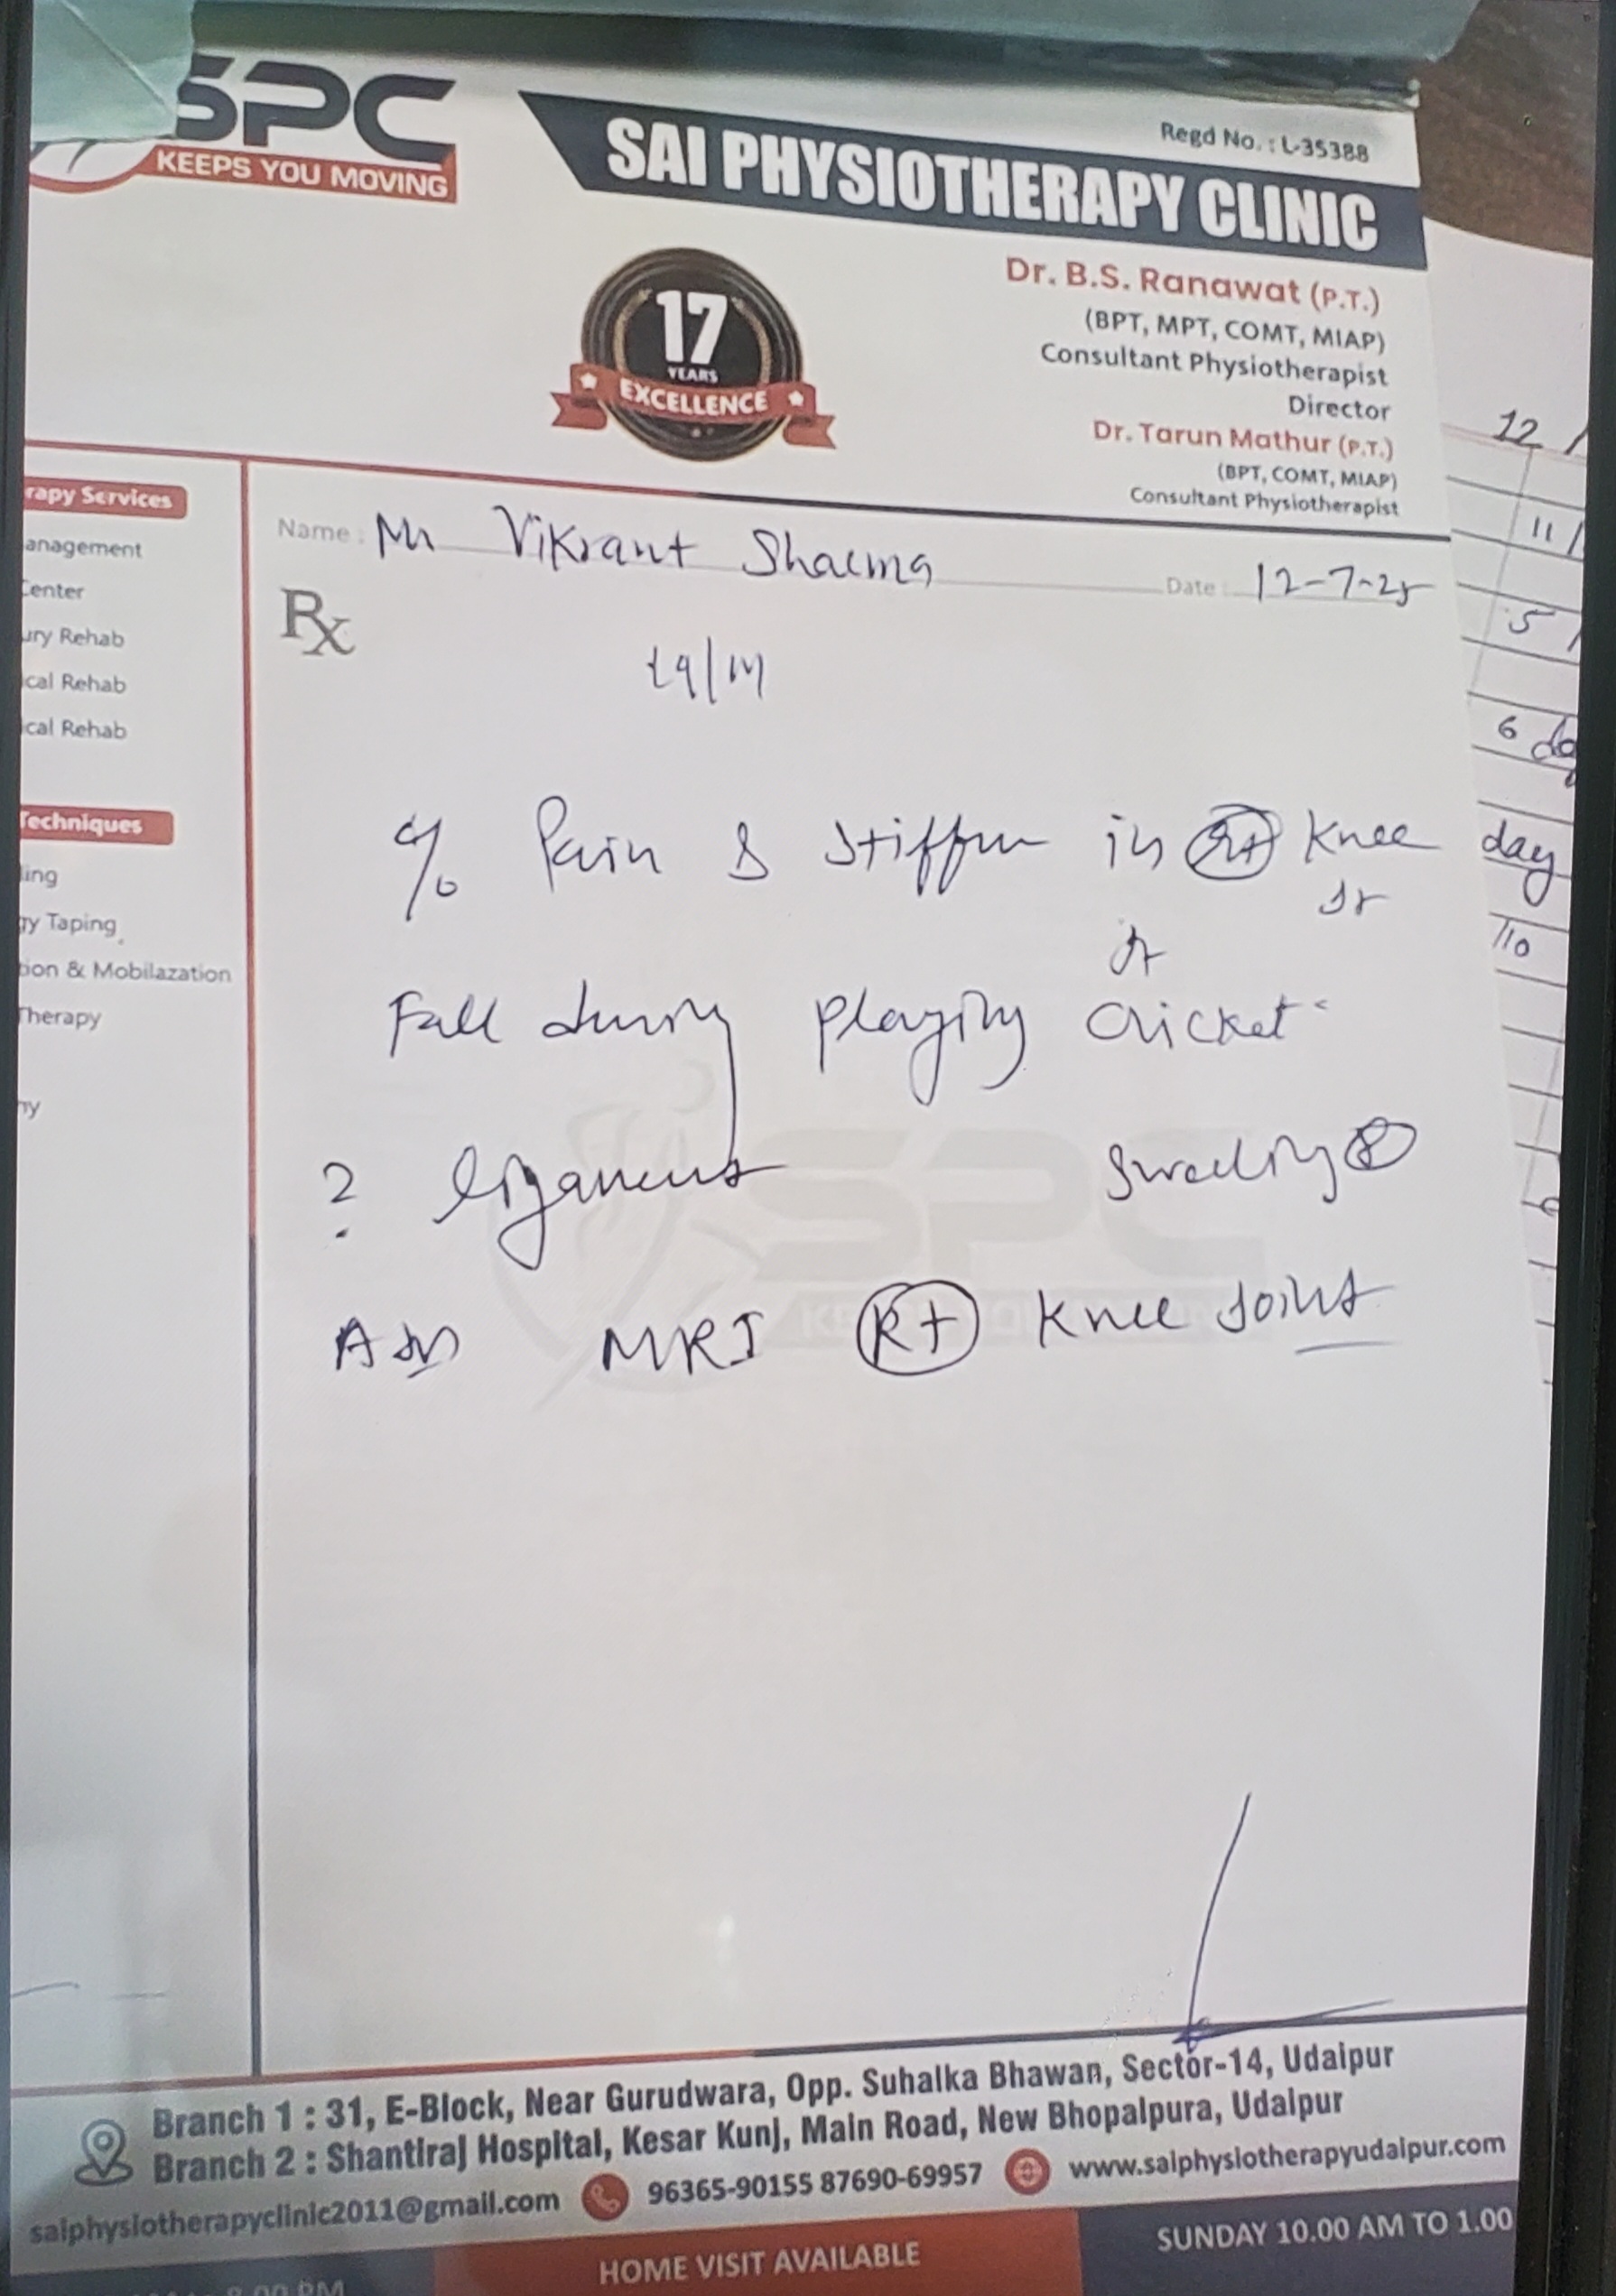 SPC
KEEPS YOU MOVING
Regd No. : L-35388
SAI PHYSIOTHERAPY CLINIC
17
YEARS
EXCELLENCE
Dr. B.S. Ranawat (P.T.)
(BPT, MPT, COMT, MIAP)
Consultant Physiotherapist
Director
Dr. Tarun Mathur (P.T.)
(BPT, COMT, MIAP)
Consultant Physiotherapist
rapy Services
anagement
Center
ury Rehab
cal Rehab
ical Rehab
Techniques
ling
gy Taping
tion & Mobilazation
Therapy
py
Name : Mr Vikrant Sharma
Date : 12-7-25
Rx
29/M
c/o Pain & stiffnes in Rt Knee
Jt
Fall during playing Cricket
? ligament swelling
Adv MRI Rt Knee Joint
SPC
12
11
5
6 da
day
/10
Branch 1 : 31, E-Block, Near Gurudwara, Opp. Suhalka Bhawan, Sector-14, Udaipur
Branch 2 : Shantiraj Hospital, Kesar Kunj, Main Road, New Bhopalpura, Udaipur
saiphysiotherapyclinic2011@gmail.com 96365-90155 87690-69957 www.saiphysiotherapyudaipur.com
8.00 PM
HOME VISIT AVAILABLE
SUNDAY 10.00 AM TO 1.00